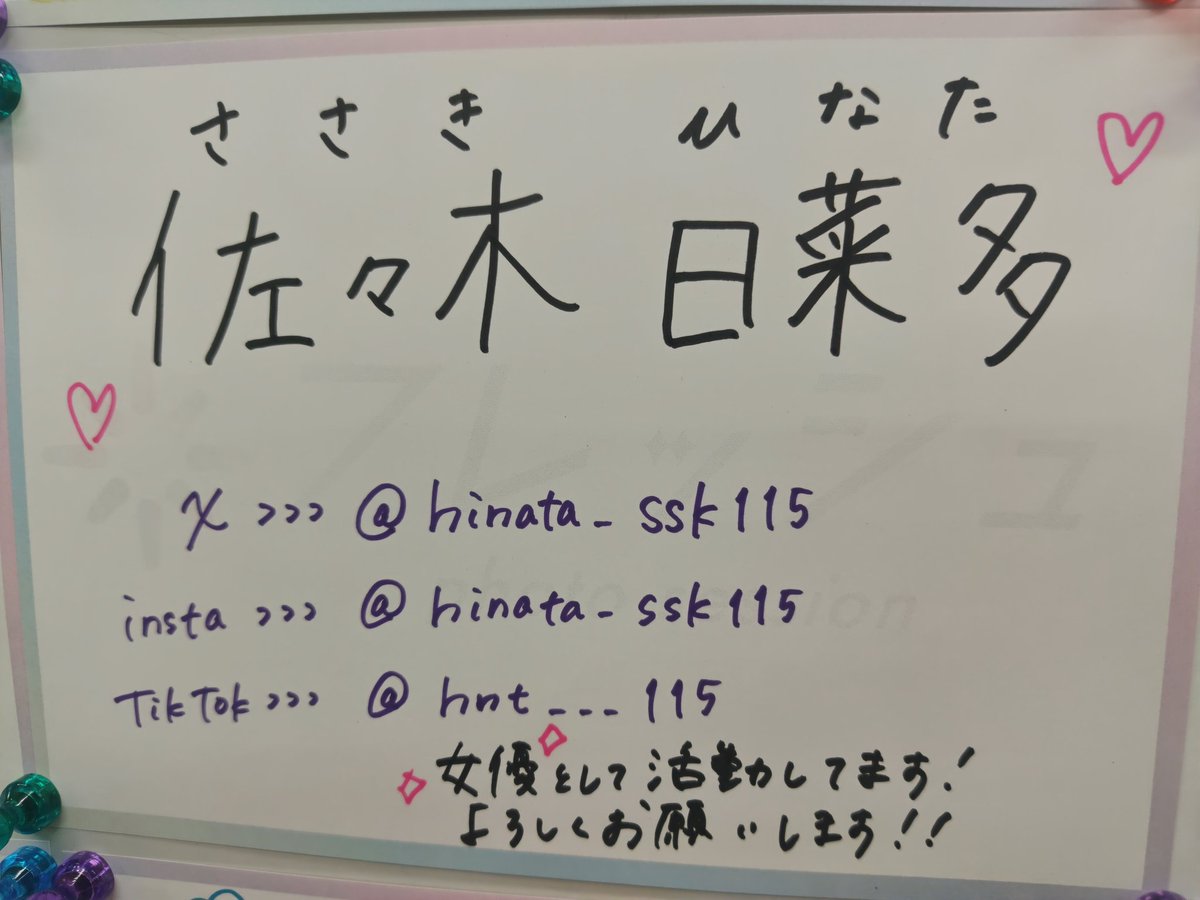 ささき ひなた
佐々木 日菜多
フレッシュ
X >>> @hinata_ssk115
insta >>> @hinata_ssk115
TikTok >>> @hnt___115
女優として活動してます!
よろしくお願いします!!